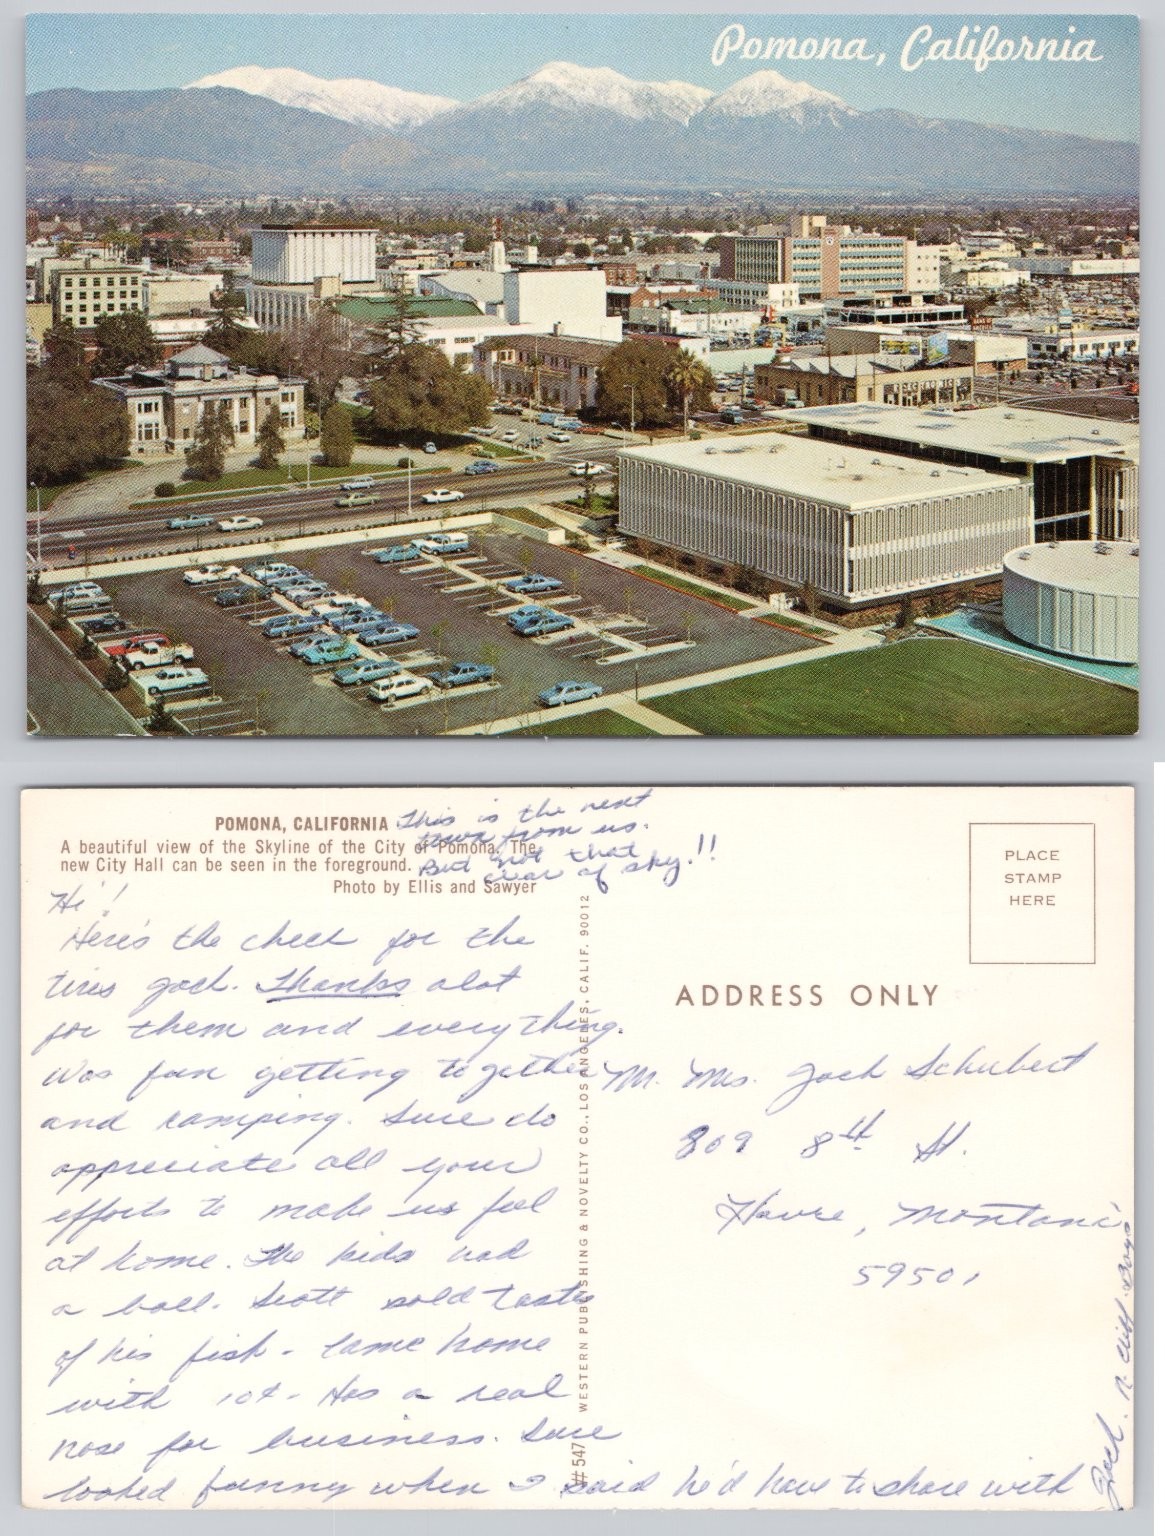 Pomona, California
POMONA, CALIFORNIA
A beautiful view of the Skyline of the City of Pomona. The
new City Hall can be seen in the foreground.
Photo by Ellis and Sawyer
This is the next
town from us.
But not that
clear of sky.!!
Hi!
Here's the check for the
tires Jack. Thanks alot
for them and everything.
Was fun getting together
and camping. Sure do
appreciate all your
efforts to make us feel
at home. The kids had
a ball. Scott sold tastes
of his fish - Came home
with 10¢. Has a real
nose for business. Sure
looked funny when I said he'd have to share with
Jack. n. Cliff. Boys
#547 WESTERN PUBLISHING & NOVELTY CO., LOS ANGELES, CALIF. 90012
PLACE
STAMP
HERE
ADDRESS ONLY
M. Mrs. Jack Schubert
809 8th St.
Havre, Montana
59501